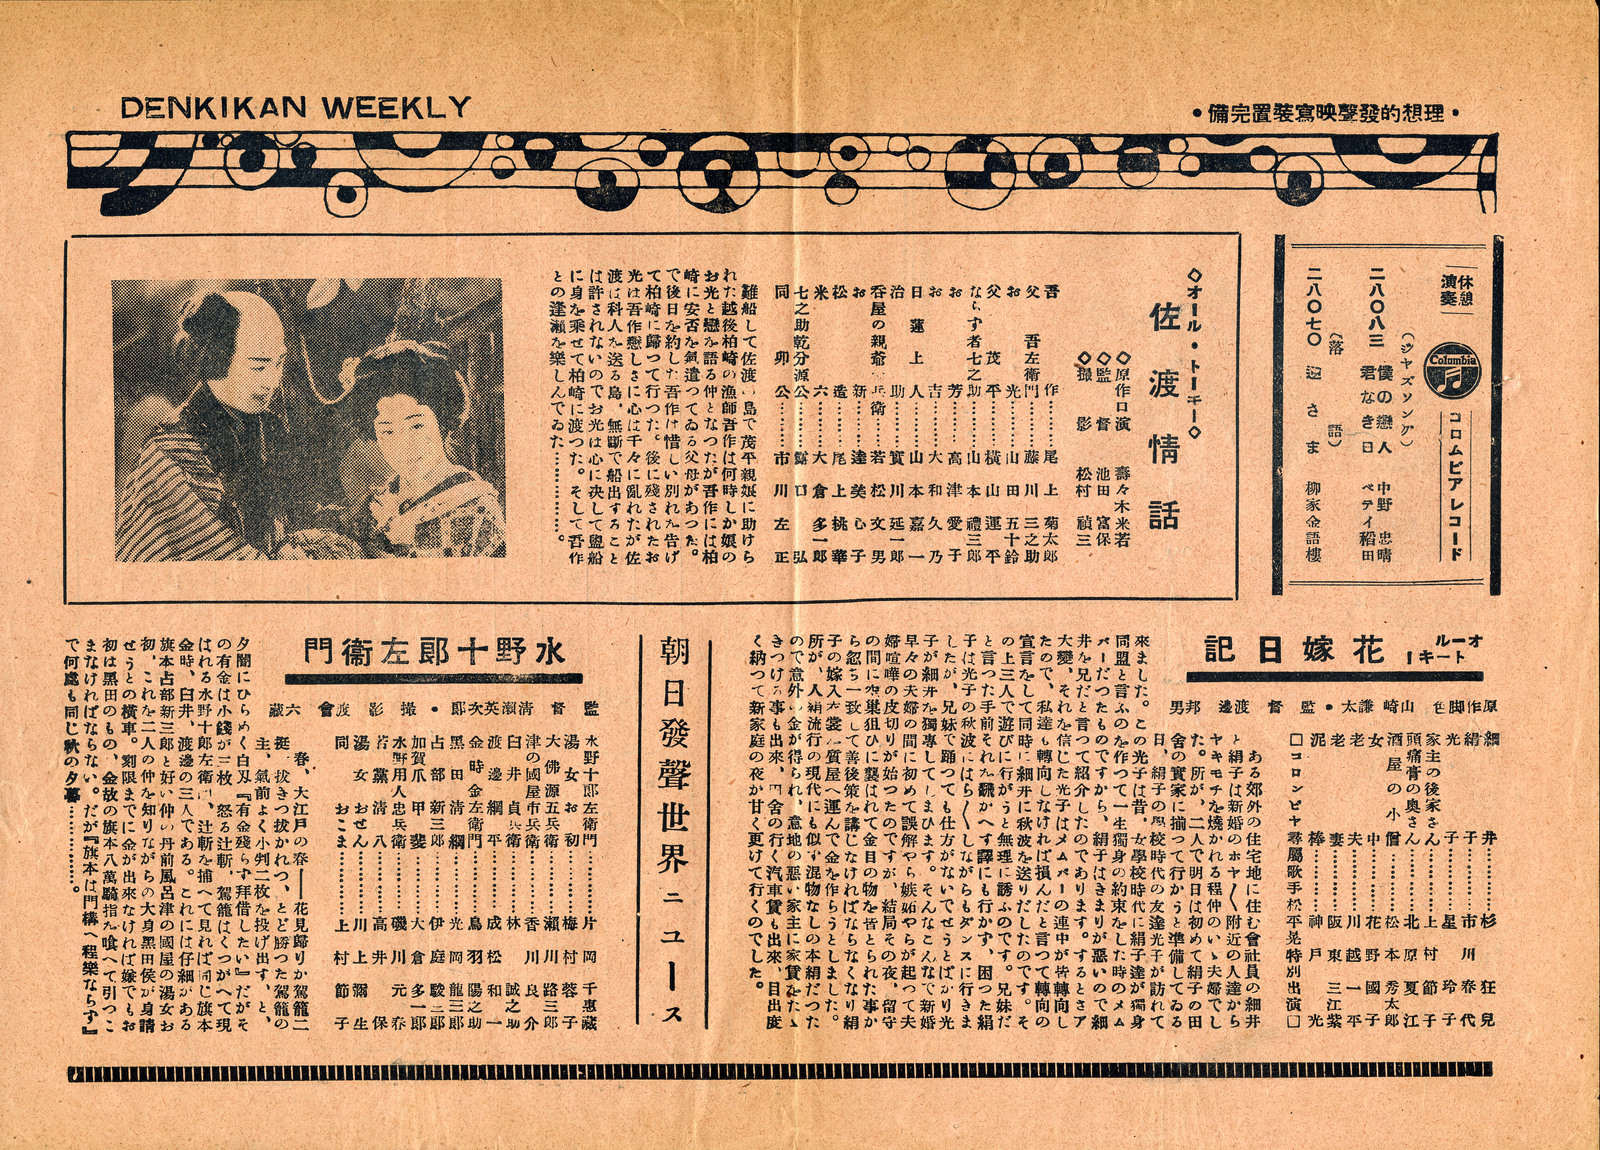 DENKIKAN WEEKLY
•理想的發聲映寫裝置完備•
休憩
演奏
Columbia
コロムビアレコード
(ジヤズソング)
二八〇八三 僕の戀人 中野忠晴
君なき日 ベテイ稻田
(落語)
二八〇七〇 迎さま 柳家金語樓
◇オール・トーキー◇
佐渡情話
◇原作口演 壽々木米若
◇監督 池田富保
◇撮影 松村禎三
吾作……尾上菊太郎
父 吾左衛門……藤川三之助
お光……山田五十鈴
父茂平……橫山運平
ならず者七之助……山本禮三郎
お芳……高津愛子
お吉……大和久乃
日蓮上人……山本嘉一
治助……實川延一郎
呑屋の親爺 兵衛……若松文男
お新……達美心子
松造……尾上桃華
米六……大倉多一郎
七之助乾分源公……露口弘
同 卯公……市川左正
難船して佐渡ヶ島で茂平親娘に助けら
れた越後柏崎の漁師吾作は何時しか娘の
お光と戀を語る仲となつたが吾作には柏
崎に安否を氣遣つてゐる父母があつた。
で後日を約した吾作は惜しい別れを告げ
て柏崎に歸つて行つた。後に殘されたお
光は吾作戀しさに心は千々に亂れたが佐
渡は科人を送る島、無斷で船出すること
は許されないのでお光は心に決して盥船
に身を乘せて柏崎に渡つた。そして吾作
との逢瀬を樂しんでゐた…………。
オール
トーキー
花嫁日記
原作脚色 山崎謙太•監督 渡邊邦男
細井……杉狂兒
絹子……市川春代
光子……星玲子
家主の後家さん……上村節子
頭痛膏の奥さん……北原夏江
酒屋の小僧……松本秀太郎
女中……花野國子
老夫……川越一平
老妻……阪東三江紫
泥棒……神戸光
□コロンビヤ專屬歌手松平晃特別出演□
ある郊外の住宅地に住む會社員の細井
と絹子は新婚のホヤ〱附近の人達から
ヤキモチを燒かれる程仲のいゝ夫婦でし
た。所が、二人で明日は初めて絹子の田
舍の實家に揃つて行かうと準備してゐる
日、絹子の學校時代の友達光子が訪れて
來ました。この光子は昔、女學校時代に絹子達が獨身
同盟と言ふのを作つて一生獨身の約束をした時のメム
バーだつたものですから、絹子はきまりが惡いので細
井を兄だと言つて紹介したのであります。するとさア
大變、それを信じた光子はメムバーの連中が皆轉向し
たので、私達も轉向しなければ損んだと言つて轉向の
宣言をして同時に細井に秋波を送りだしたのです。そ
の上三人で遊びに行かうと無理に誘ふのです。兄妹だ
と言つた手前それを飜かへす譯にも行かず、困つた絹
子は光子の秋波にはら〱しながらもダンスに行きま
したが、兄妹で踊つても仕方がないでせうとばかり光
子が細井を獨專してしまひます。そんなこんなで新婚
早々の夫婦の間に初めて誤解やら嫉妬やらが起つて夫
婦喧嘩の皮切りが始つたのですが、結局その夜、留守
の間に空巣狙ひに襲はれて金目の物を皆とられた事か
ら忽ち一致して善後策を講じなければならなくなり絹
子の嫁入衣裳を質屋へ運んで金を作らうとしましたが
所が、人絹流行の現代にも似ず混物なしの本絹だつた
ので意外の金が得られ、意地の惡い家主に家賃をたゝ
きつける事も出來、田舍の行く汽車賃も出來、目出度
く納つて新家庭の夜が甘く更けて行くのでした。
朝日發聲世界ニュース
水野十郎左衞門
監督 清瀬英次郎•撮影 渡會六藏
水野十郎左衛門……片岡千惠藏
湯女お初……梅村蓉子
大佛源五兵衛……瀬川路三郎
津の國屋市兵衛……香川良介
臼井貞衛……林誠之助
渡邊綱平……成松和一
金時金左衛門……鳥羽陽之助
黑田清綱……光岡龍三郎
占部新三郎……伊庭駿三郎
加賀爪甲斐……大倉多一郎
水野用人忠兵衛……磯川元春
若黨清八……高井保
湯女おせん……川上彌生
同おこま……上村節子
春、大江戸の春――花見歸りか駕籠二
挺、拔きつ拔かれつ、とゞ勝つた駕籠の
主、氣前よく小判二枚を投げ出す、と、
夕闇にひらめく白刄『有金殘らず拜借したい』だがそ
の有金は小錢が三枚、怒る辻斬、駕籠はくつがへて現
はれる水野十郎左衛門、辻斬を捕へて見れば同じ旗本
金時、臼井、渡邊の三人である。これには仔細がある
旗本占部新三郎と好い仲の丹前風呂津の國屋の湯女お
初、これを二人の仲を知りながらの大身黑田侯が身請
せうとの橫車。刻限までに金が出來なければ嫌でもお
初は黑田のもの、金故の旗本八萬騎指を喰へて引つこ
まなければならない。だが『旗本は門構へ程樂ならず』
で何處も同じ秋の夕暮…………。